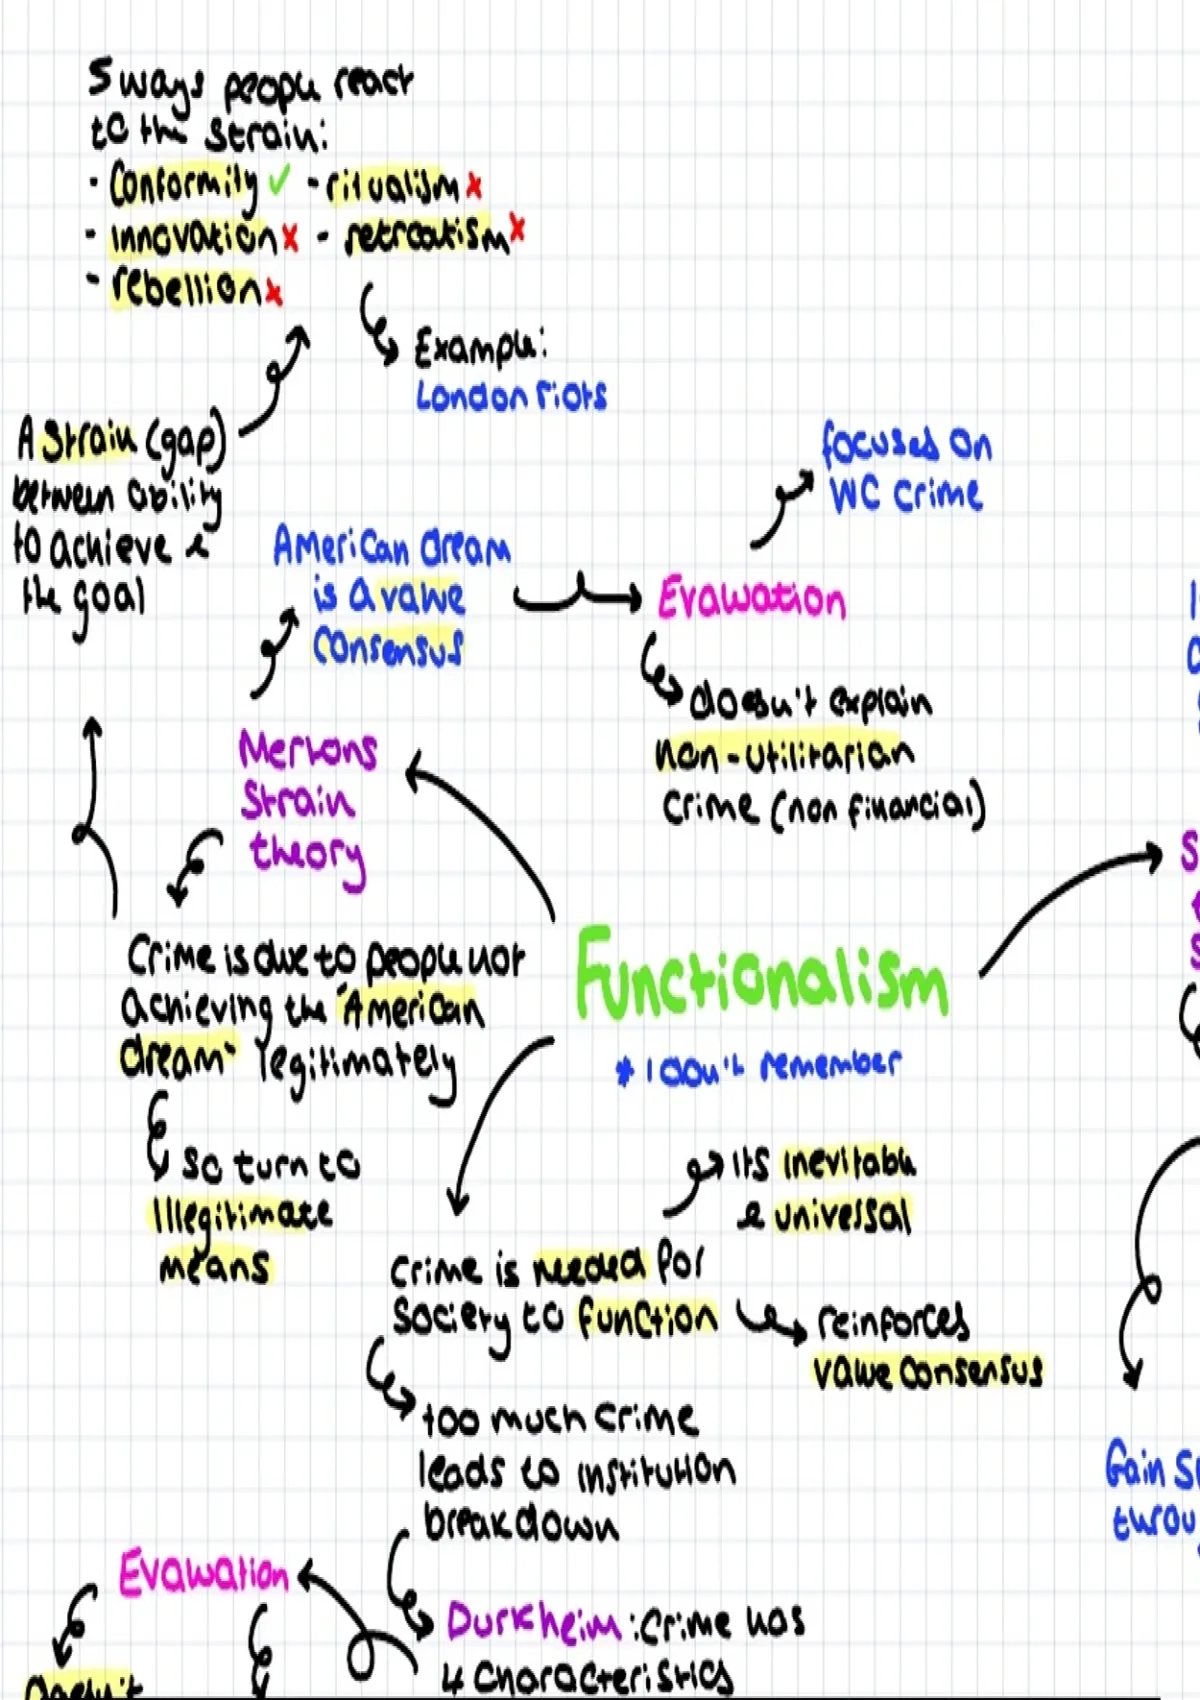 5 ways people react
to the strain:
- Conformity ✓ - ritualism x
- innovation x - retreatism x
- rebellion x
Example:
London riots
A strain (gap)
between ability
to achieve &
the goal
American dream
is a value
consensus
Evaluation
focused on
WC crime
doesn't explain
non-utilitarian
crime (non financial)
Mertons
Strain
theory
Crime is due to people not
achieving the "American
dream" legitimately
so turn to
illegitimate
means
Functionalism
* I don't remember
its inevitable
& universal
crime is needed for
society to function
reinforces
value consensus
too much crime
leads to institution
breakdown
Evaluation
Durkheim: crime has
4 characteristics
doesn't
Gain